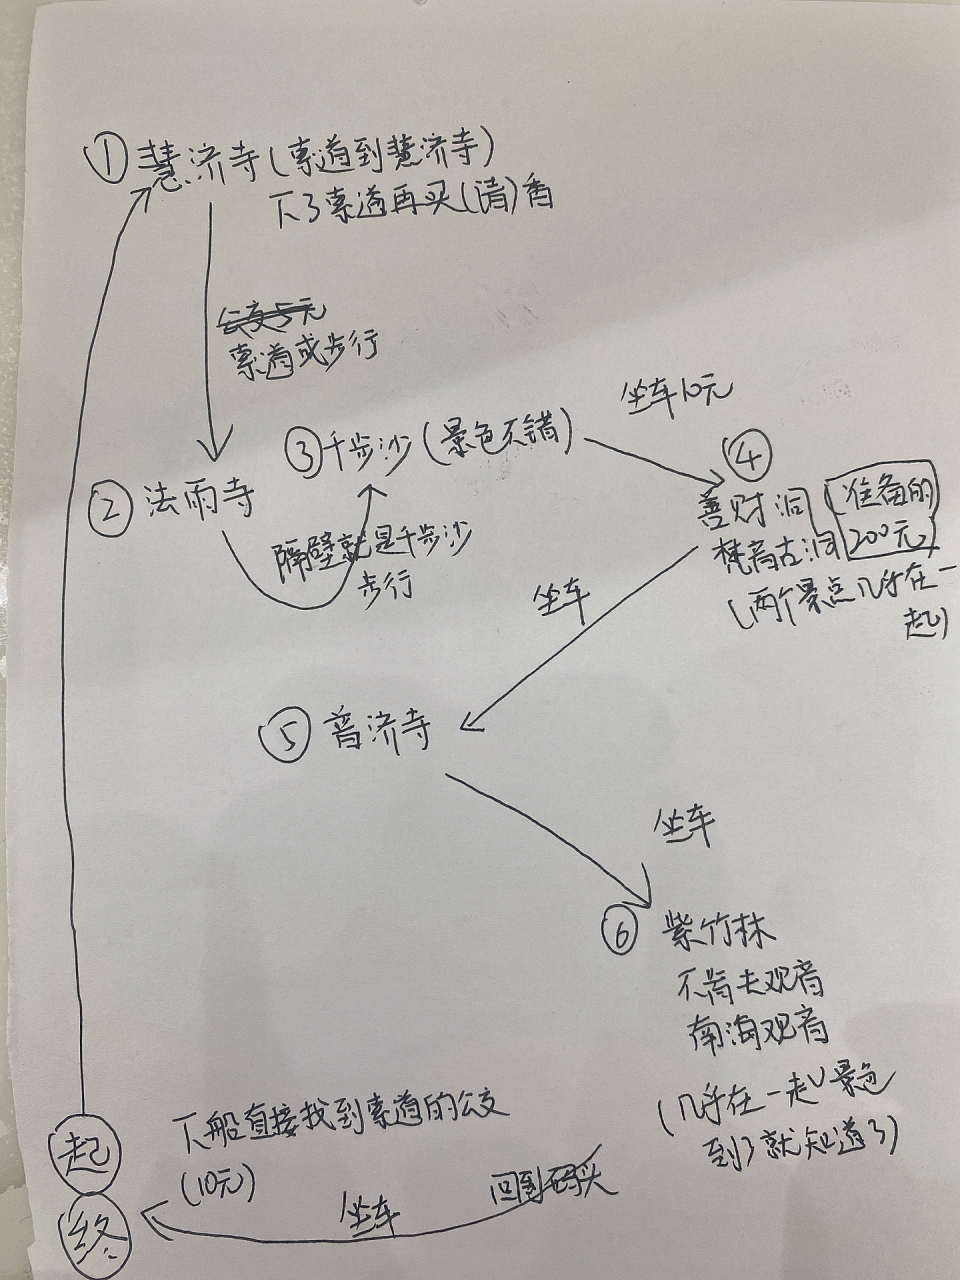 ① 慧济寺(索道到慧济寺)
下了索道再买(请)香
公交5元
索道或步行
坐车10元
③千步沙(景色不错)
④
② 法雨寺
善财洞
梵音古洞
(准备的
200元)
(两个景点几乎在一
起)
隔壁就是千步沙
步行
坐车
⑤ 普济寺
坐车
⑥ 紫竹林
不肯去观音
南海观音
(几乎在一起✓景色
到了就知道了)
起
下船直接找到索道的公交
(10元)
终
坐车
回到码头